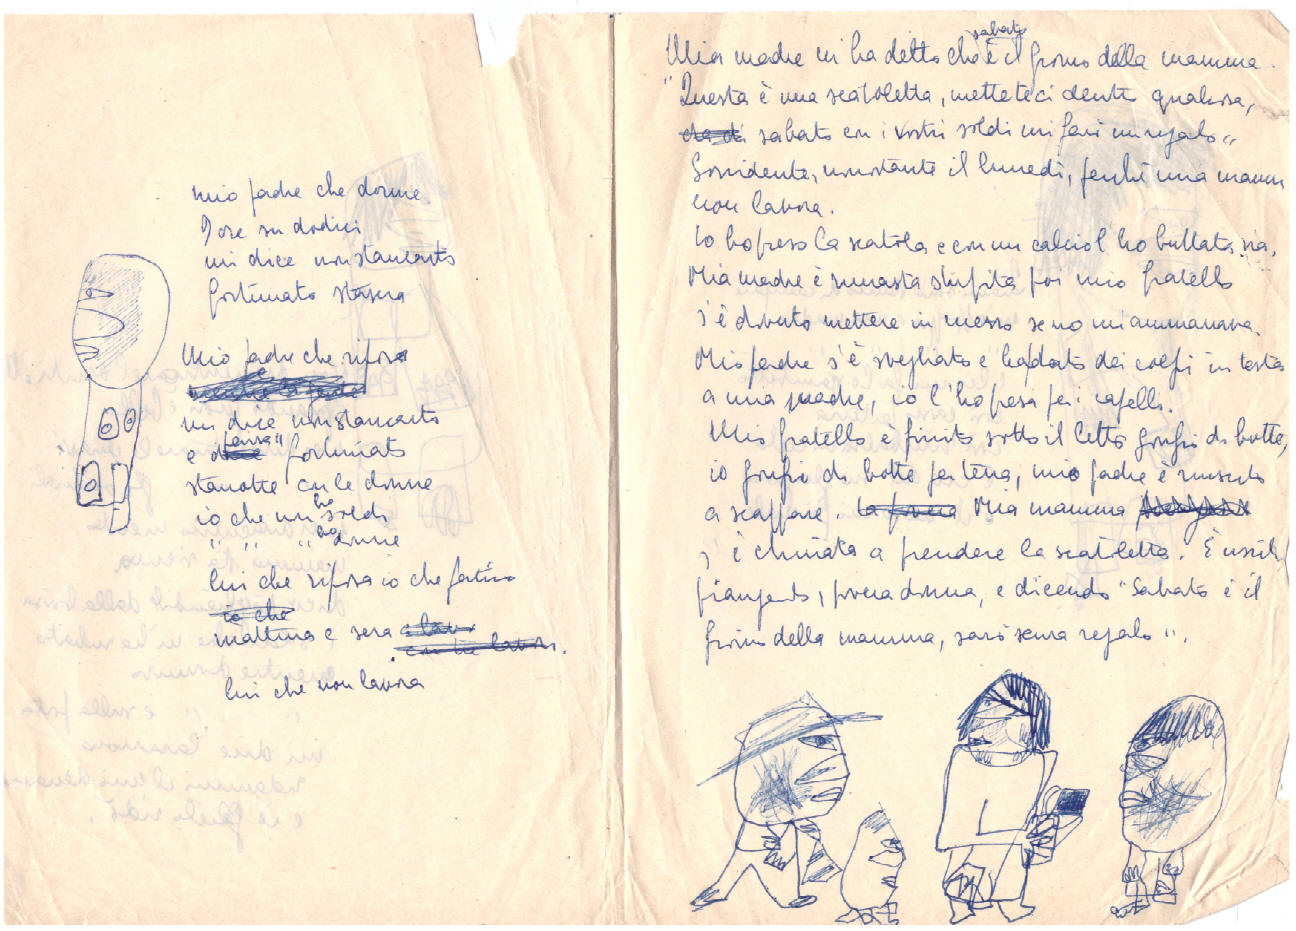 mio padre che dorme
9 ore su dodici
mi dice non stancarto
fortunato stasera
Mio padre che riposa
mi dice non stancarto
e pensa fortunato
stanotte con le donne
io che mi ho soldi
" " " ho donne
lui che riposa io che fatico
io che
mattina e sera
con tre lavori.
lui che non lavora
Mia madre mi ha detto che sabato è il giorno della mamma.
"Questa è una scatoletta, metteteci dentro qualcosa,
sabato con i vostri soldi mi fari un regalo"
Sorridente, nonostante il lunedì, perché mia mamma
non lavora.
Io ho preso la scatola e con un calcio l'ho buttata via.
Mia madre è rimasta stupita poi mio fratello
s'è dovuto mettere in mezzo se no mi ammazzava.
Mio padre s'è svegliato e ha dato dei colpi in testa
a mia madre, io l'ho presa per i capelli.
Mio fratello è finito sotto il letto gonfio di botte,
io gonfio di botte per terra, mio padre è riuscito
a scappare. la povera Mia mamma
s'è chinata a prendere la scatoletta. È uscita
piangendo, povera donna, e dicendo "Sabato è il
giorno della mamma, sarò senza regalo".